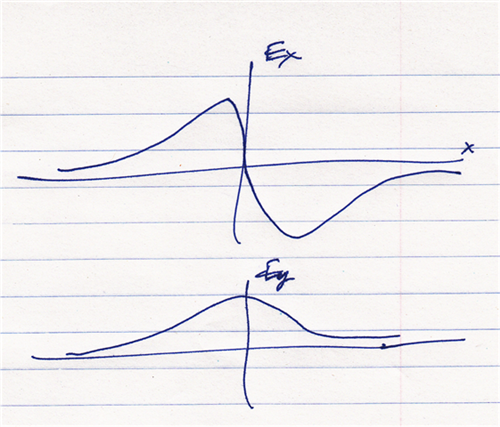 Ex
x
Ey